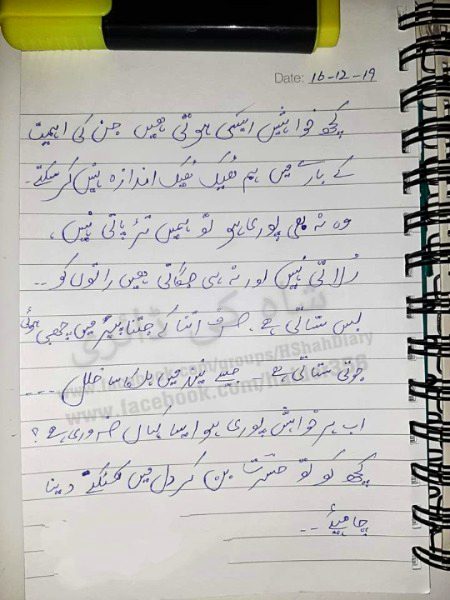 Date: 16-12-19
کچھ خواہشیں ایسی ہوتی ہیں جن کی اہمیت
کے بارے میں ہم ٹھیک ٹھیک اندازہ نہیں کر سکتے۔
وہ نہ بھی پوری ہو تو ہمیں تڑپاتی نہیں،
رُلاتی نہیں اور نہ ہی جگاتی ہیں راتوں کو ۔۔
بس ستاتی ہے۔ صرف اتنا کے جتنا پیر میں چبھی ہوئی
جوتی ستاتی ہے۔ جیسے نیند میں ہلکا سا خلل ۔۔۔
اب ہر خواہش پوری ہو ایسا کہاں ضروری ہے؟
کچھ کو تو حسرت بن کر دل میں کھٹکنے دینا
چاہیئے ۔۔
شاہ کی ڈائری
www.facebook.com/groups/HShahDiary
www.facebook.com/